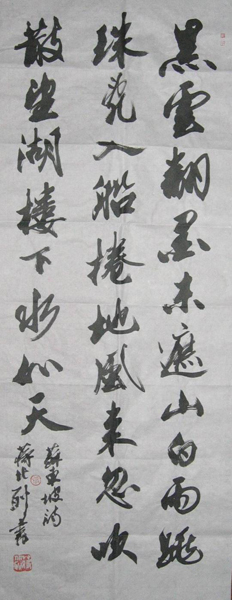 黑雲翻墨未遮山白雨跳
珠亂入船捲地風来忽吹
散望湖樓下水如天
蘇東坡詩
書